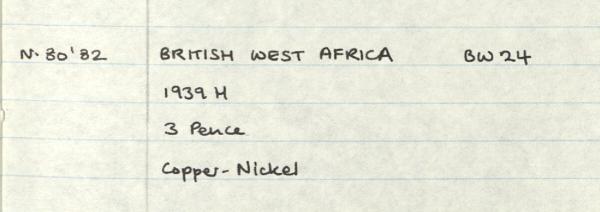 N. 80'82 BRITISH WEST AFRICA BW 24
1939 H
3 Pence
Copper-Nickel